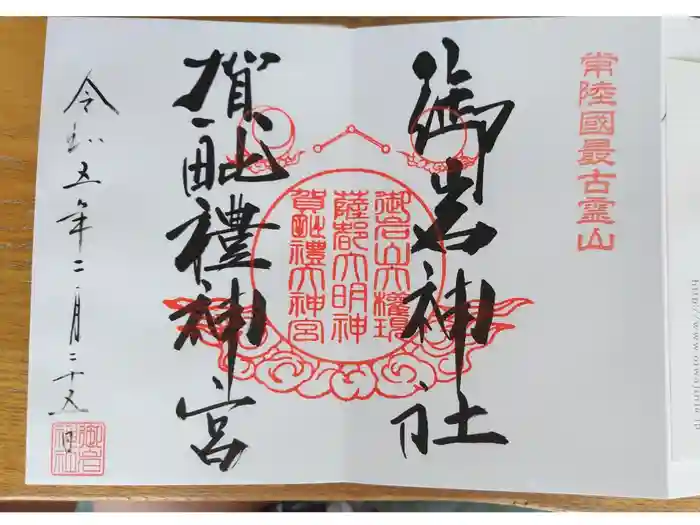 常陸國最古霊山
御岩神社
御岩山大權現
薩都大明神
賀毗禮大神宮
賀毗禮神宮
令和五年二月二十五日
御岩神社
http://www.oiwajinja.jp